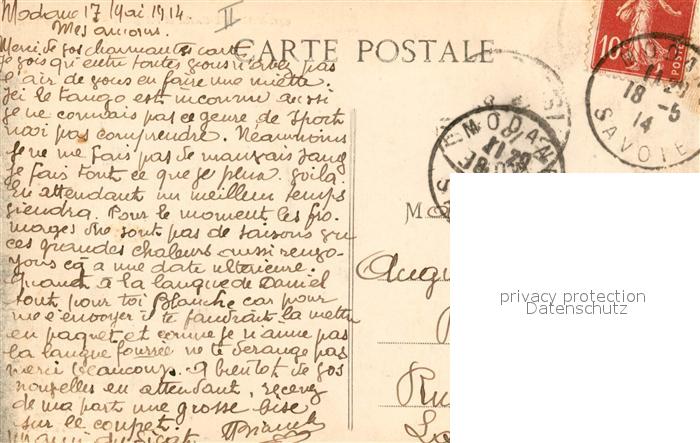 Modane 17 Mai 1914.
II
Mes amours.
CARTE POSTALE
Merci de vos charmantes cartes
je vois qu'entre toutes vous n'avez pas
l'air de vous en faire une miette.
Ici le tango est inconnu aussi
je ne connais pas ce genre de sport
moi pas comprendre. Néanmoins
je ne me fais pas de mauvais sang
je fais tout ce que je peux voilà.
En attendant un meilleur temps
viendra. Pour le moment les fro-
mages ne sont pas de saisons vu
ces grandes chaleurs aussi renvo-
yons ça a une date ultérieure.
Quant à la langue de Daniel
tout pour toi Blanche car pour
me l'envoyer il te faudrait la mettre
en paquet et comme je n'aime pas
la langue fourrée ne te dérange pas
merci beaucoup. A bientôt de vos
nouvelles en attendant, recevez
de ma part une grosse bise
sur le coupet.
10
POSTES
MODANE
11 29
18 -5
14
SAVOIE
MODANE
11 29
18
M
Augu
Ru
privacy protection
Datenschutz